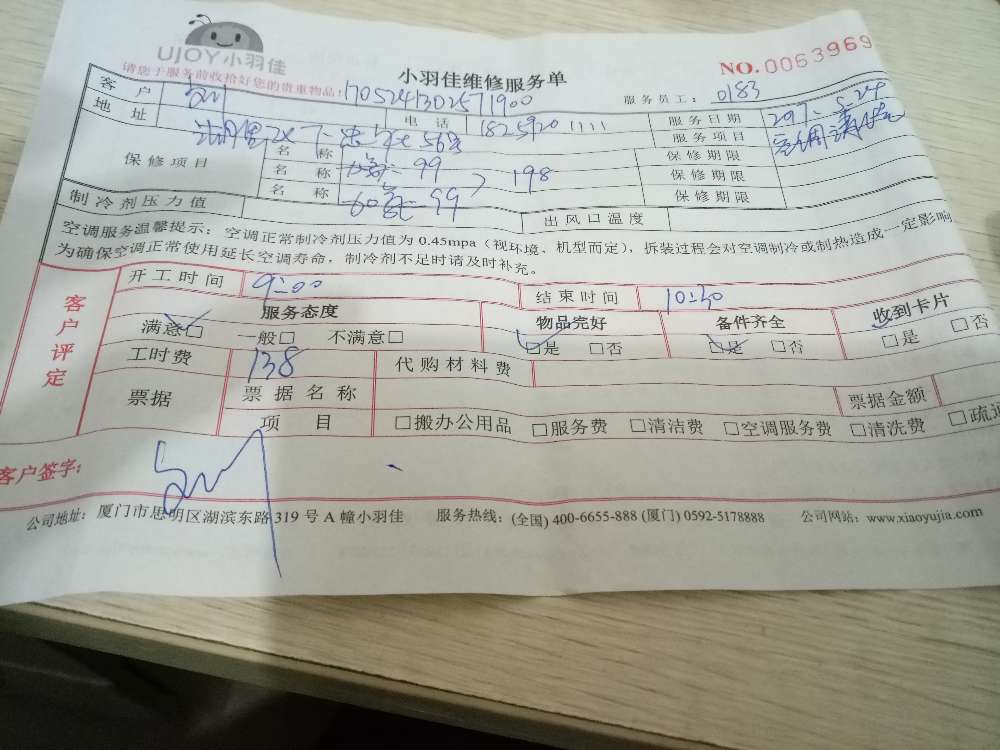 UJOY小羽佳
小羽佳维修服务单
NO.0063969
请您于服务前收拾好您的贵重物品! 170524130257 1900
服务员工: 0183
客户 电话 1825920 1111 服务日期 2017.5.24
地址 服务项目 空调清洗
保修项目 名称 99 保修期限
名称 198 保修期限
名称 99 保修期限
制冷剂压力值 出风口温度
空调服务温馨提示:空调正常制冷剂压力值为 0.45mpa(视环境、机型而定),拆装过程会对空调制冷或制热造成一定影响
为确保空调正常使用延长空调寿命,制冷剂不足时请及时补充。
客户评定
开工时间 9:00 结束时间 10:30
服务态度 物品完好 备件齐全 收到卡片
满意□ 一般□ 不满意□ □是 □否 □是 □否 □是 □否
工时费 138 代购材料费
票据 票据名称 票据金额
项目 □搬办公用品 □服务费 □清洁费 □空调服务费 □清洗费 □疏通
客户签字:
公司地址:厦门市思明区湖滨东路 319 号 A 幢小羽佳 服务热线:(全国) 400-6655-888 (厦门) 0592-5178888 公司网站:www.xiaoyujia.com